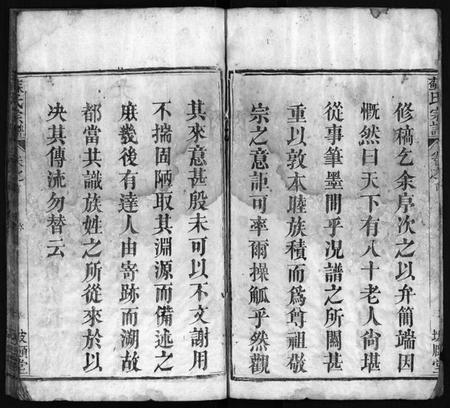 修稿乞余序次之以弁簡端因
慨然曰天下有八十老人尙堪
從事筆墨間乎况譜之所關甚
重以敦本睦族積而爲尊祖敬
宗之意詎可率爾操觚乎然觀
其來意甚殷未可以不文謝用
不揣固陋取其淵源而備述之
庻幾後有達人由寄跡而溯故
都當共識族姓之所從來於以
决其傳流勿替云
蘇氏宗譜